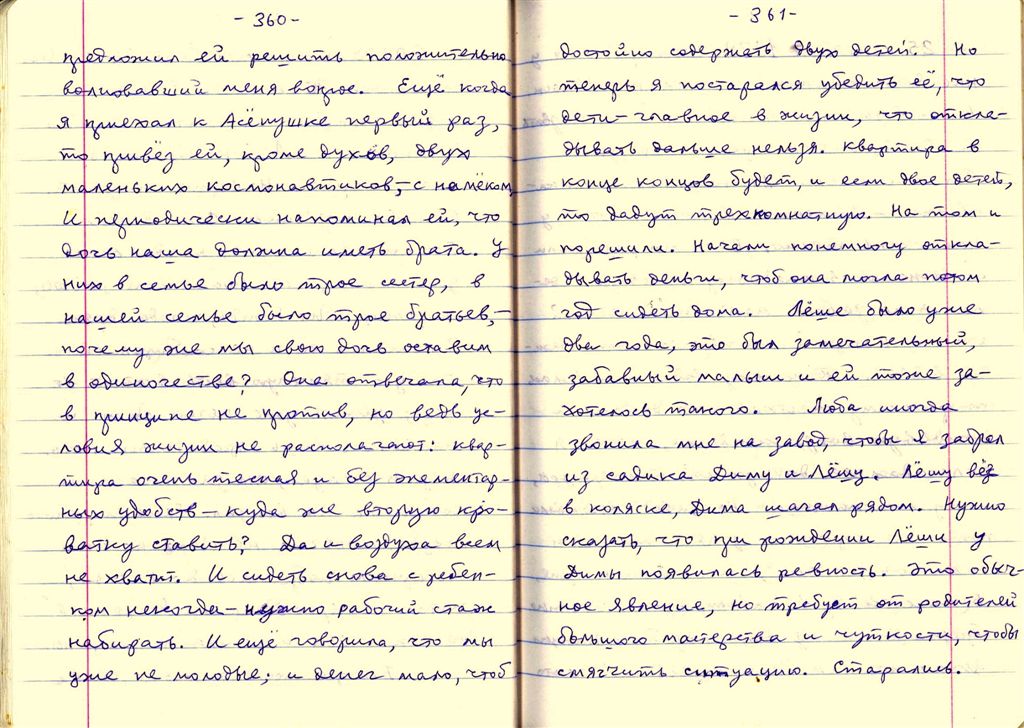 - 360 -
предложил ей решить положительно
волновавший меня вопрос. Ещё когда
я приехал к Асёпушке первый раз,
то привёз ей, кроме духов, двух
маленьких космонавтиков,- с намёком
И периодически напоминал ей, что
дочь наша должна иметь брата. У
них в семье было трое сестер, в
нашей семье было трое братьев,-
почему же мы свою дочь оставим
в одиночестве? Она отвечала, что
в принципе не против, но ведь ус-
ловия жизни не располагают: квар-
тира очень тесная и без элементар-
ных удобств - куда же вторую кро-
ватку ставить? Да и воздуха всем
не хватит. И сидеть снова с ребен-
ком некогда - нужно рабочий стаж
набирать. И ещё говорила, что мы
уже не молодые; и денег мало, чтоб
- 361 -
достойно содержать двух детей. Но
теперь я постарался убедить её, что
дети - главное в жизни, что откла-
дывать дальше нельзя. Квартира в
конце концов будет, и если двое детей,
то дадут трехкомнатную. На том и
порешили. Начали понемногу откла-
дывать деньги, чтоб она могла потом
год сидеть дома. Лёше было уже
два года, это был замечательный,
забавный малыш и ей тоже за-
хотелось такого. Люба иногда
звонила мне на завод, чтобы я забрал
из садика Диму и Лёшу. Лёшу вёз
в коляске, Дима шагал рядом. Нужно
сказать, что при рождении Лёши у
Димы появилась ревность. Это обыч-
ное явление, но требует от родителей
большого мастерства и чуткости, чтобы
смягчить ситуацию. Старались.